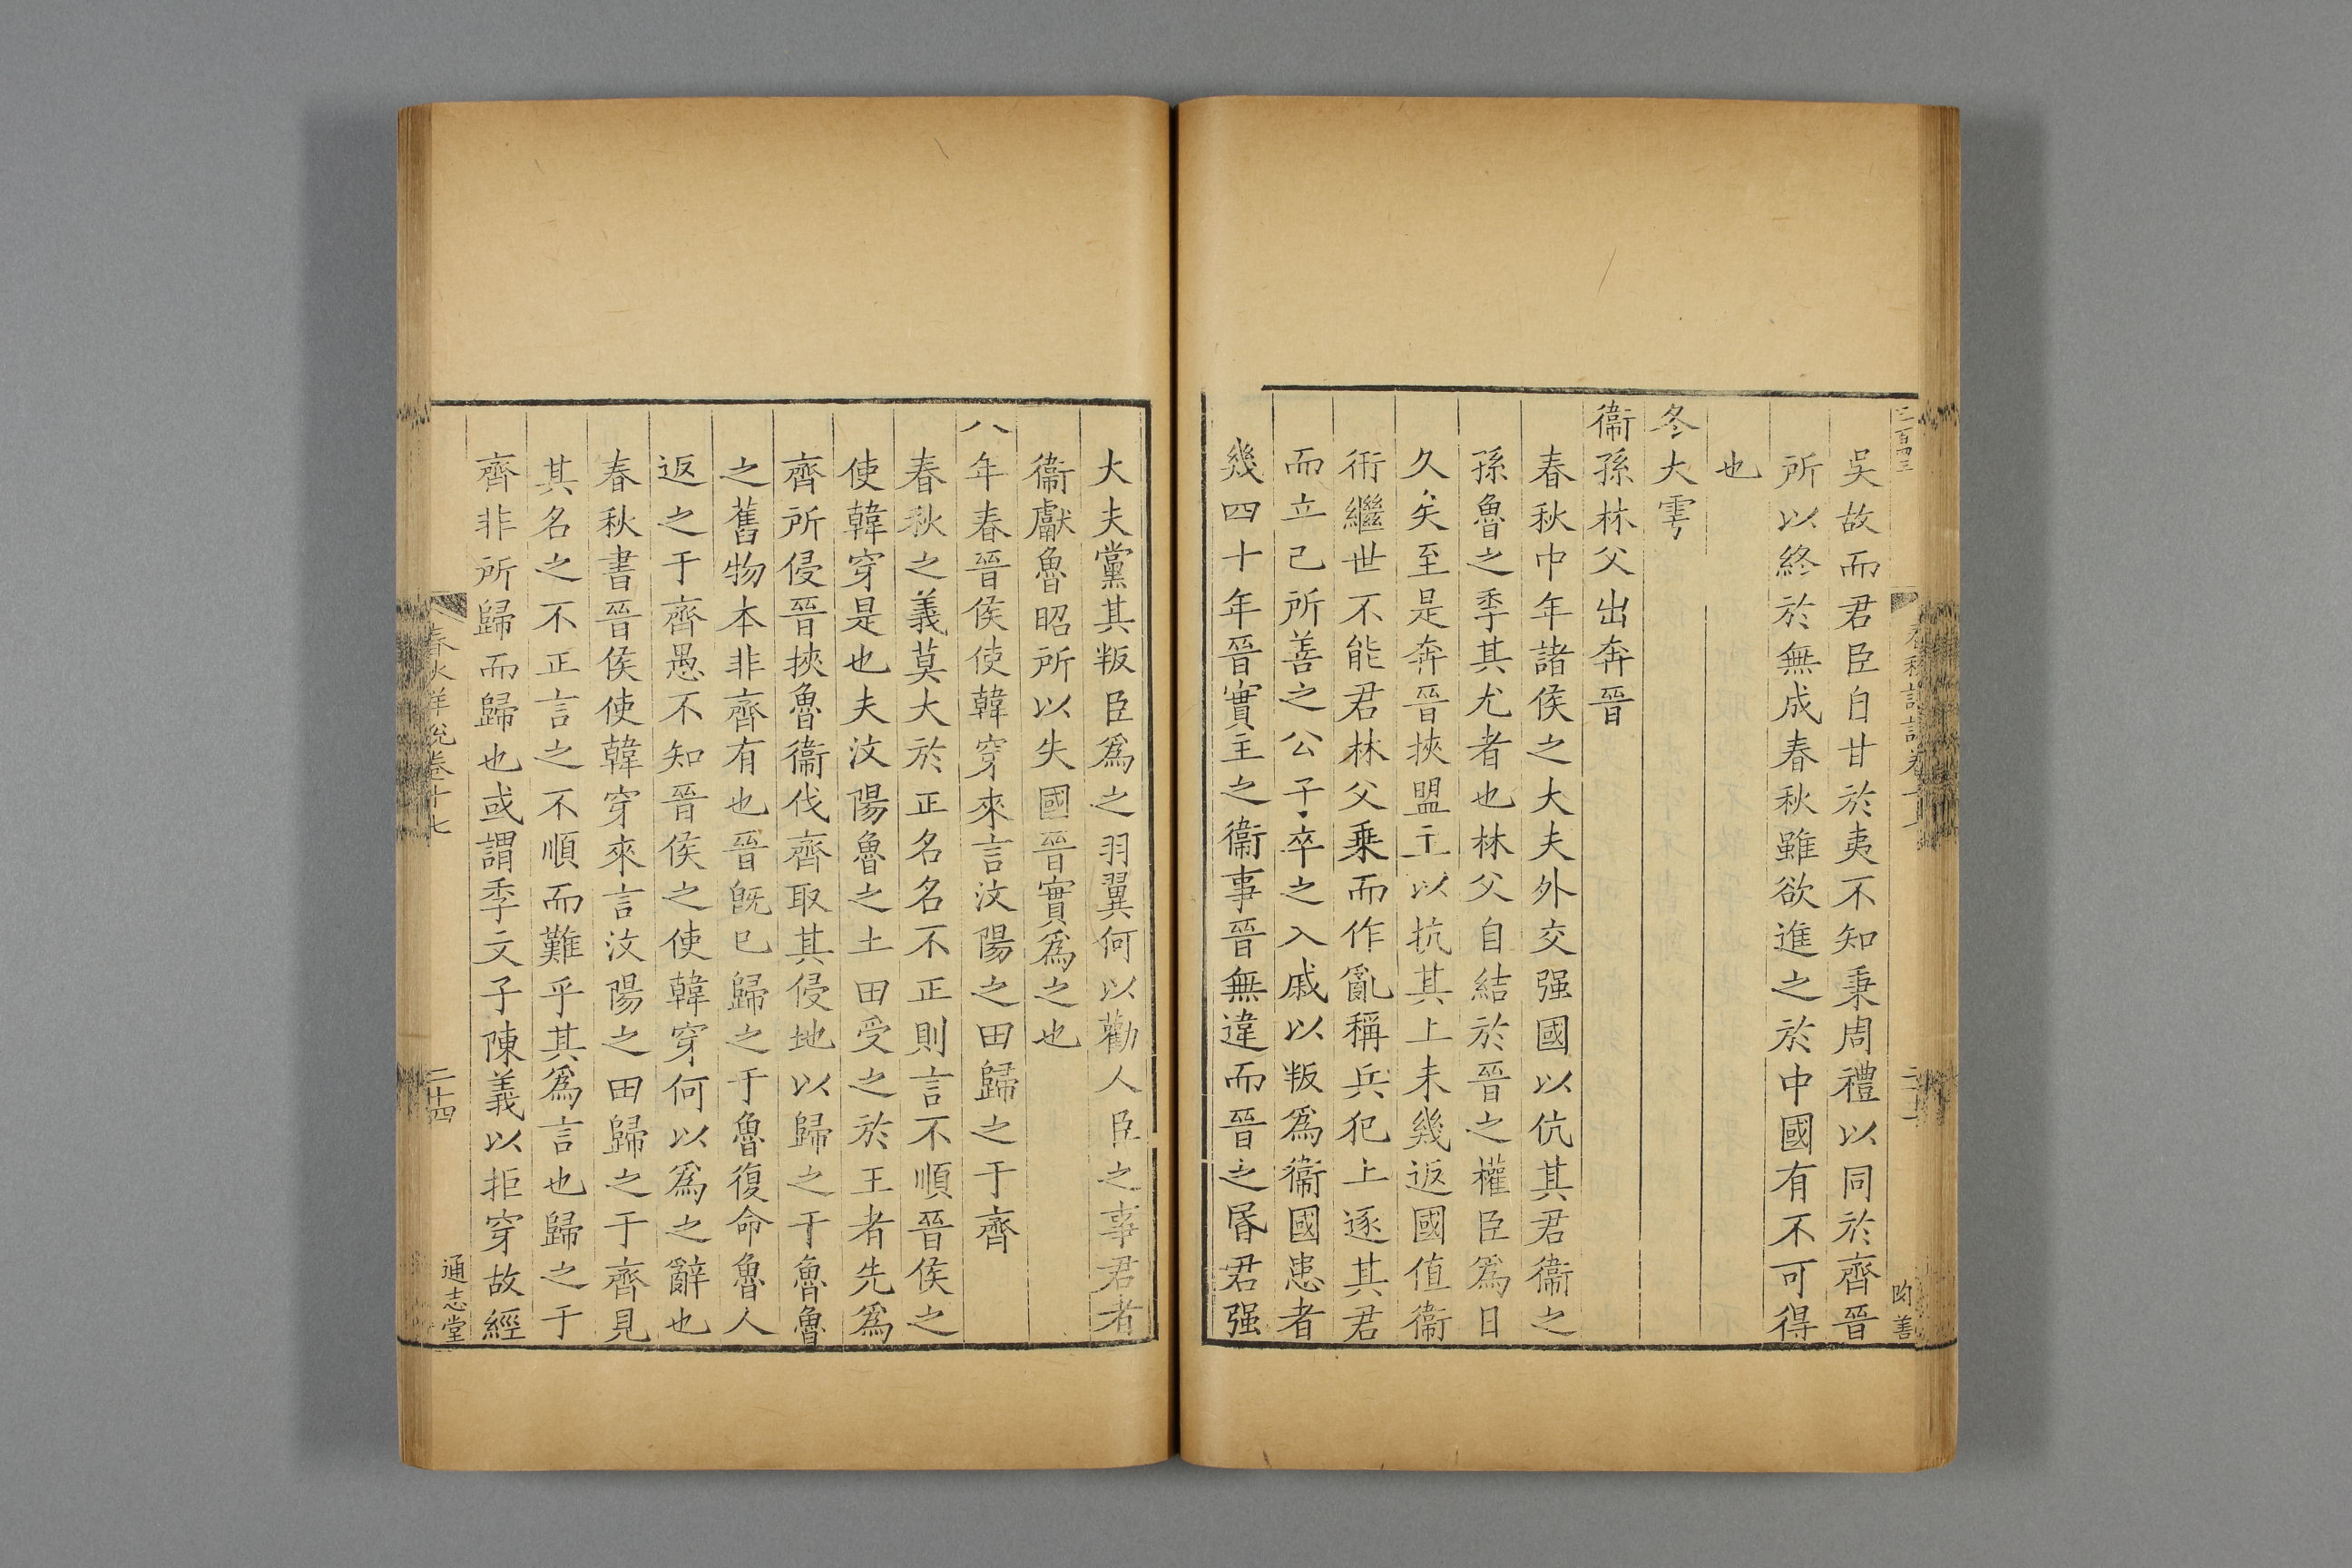 吳故而君臣自甘於夷不知秉周禮以同於齊晉
所以終於無成春秋雖欲進之於中國有不可得
也
冬大雩
衞孫林父出奔晉
春秋中年諸侯之大夫外交强國以伉其君衞之
孫魯之季其尤者也林父自結於晉之權臣爲日
久矣至是奔晉挾盟主以抗其上未幾返國值衞
衎繼世不能君林父乗而作亂稱兵犯上逐其君
而立己所善之公子卒之入戚以叛爲衞國患者
幾四十年晉實主之衞事晉無違而晉之昬君强
大夫黨其叛臣爲之羽翼何以勸人臣之事君者
衞獻魯昭所以失國晉實爲之也
八年春晉侯使韓穿來言汶陽之田歸之于齊
春秋之義莫大於正名名不正則言不順晉侯之
使韓穿是也夫汶陽魯之土田受之於王者先爲
齊所侵晉挾魯衞伐齊取其侵地以歸之于魯魯
之舊物本非齊有也晉旣已歸之于魯復命魯人
返之于齊愚不知晉侯之使韓穿何以爲之辭也
春秋書晉侯使韓穿來言汶陽之田歸之于齊見
其名之不正言之不順而難乎其爲言也歸之于
齊非所歸而歸也或謂季文子陳義以拒穿故經
春秋詳說卷十七
二十四
通志堂